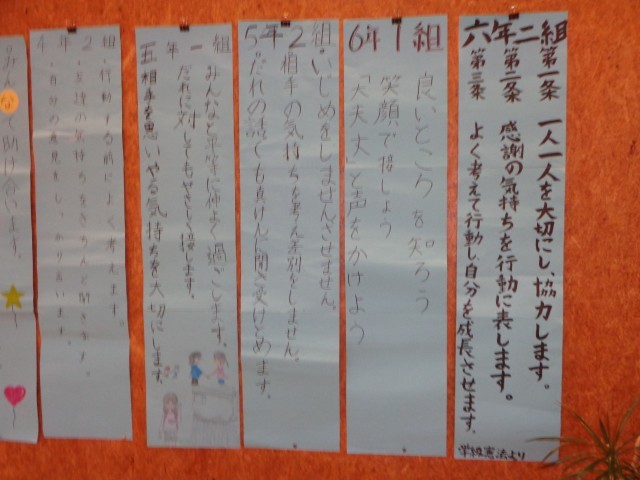 六年二組
第一条 一人一人を大切にし、協力します。
第二条 感謝の気持ちを行動に表します。
第三条 よく考えて行動し、自分を成長させます。
学級憲法より
6年1組
良いところを知ろう
笑顔で接しよう
「大丈夫」と声をかけよう
5年2組
いじめをしませんさせません。
相手の気持ちを考え差別をしません。
だれの話でも真けんに聞き受けとめます。
五年一組
みんなと平等に仲よく過ごします。
だれに対してもやさしく接します。
相手を思いやる気持ちを大切にします。
4年2組
行動する前によく考えます。
友達の気持ちを
自分の意見を
みんなで助け合います。